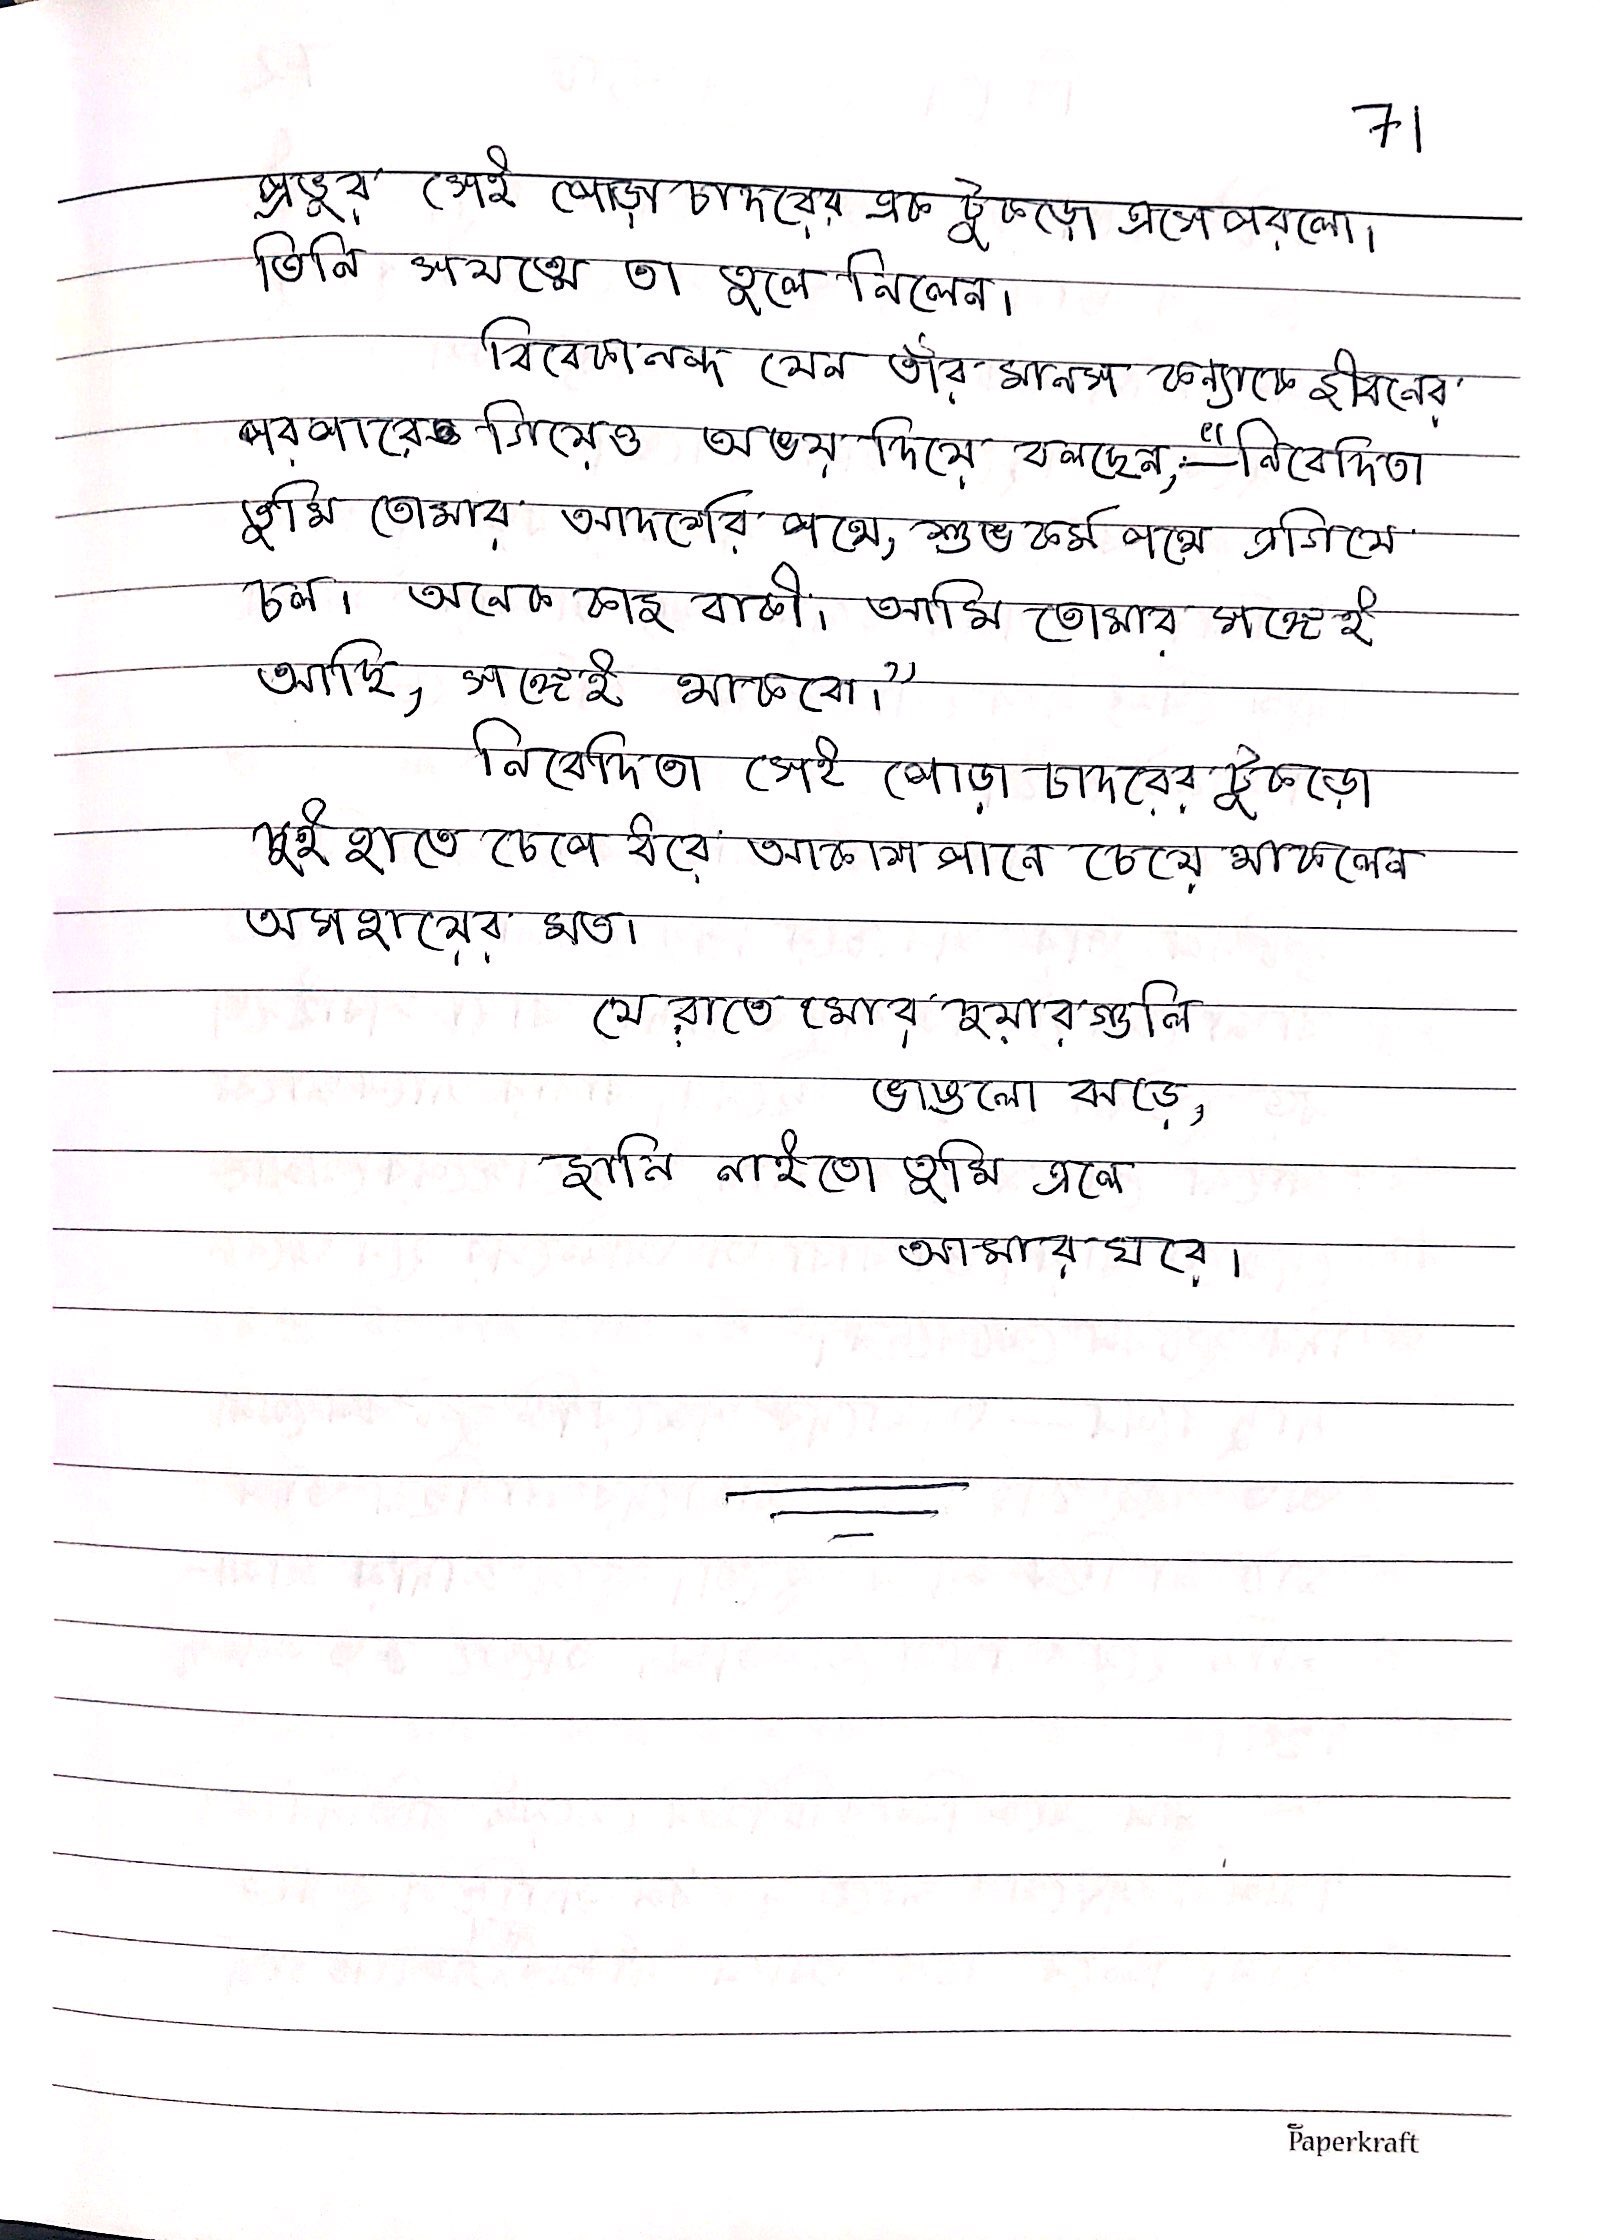 71
প্রভুর সেই পোড়া চাদরের এক টুকড়ো এসে পরলো।
তিনি সযত্মে তা তুলে নিলেন।
বিবেকানন্দ যেন তাঁর মানস কন্যাকে জীবনের
পরপারে গিয়েও অভয় দিয়ে বলছেন,—"নিবেদিতা
তুমি তোমার আদর্শের পথে, শুভকর্ম পথে এগিয়ে
চল। অনেক কাজ বাকী। আমি তোমার সঙ্গেই
আছি, সঙ্গেই থাকবো।"
নিবেদিতা সেই পোড়া চাদরের টুকড়ো
দুই হাতে চেপে ধরে আকাশ পানে চেয়ে থাকলেন
অসহায়ের মত।
যে রাতে মোর দুয়ারগুলি
ভাঙলো ঝড়ে,
জানি নাইতো তুমি এলে
আমার ঘরে।
Paperkraft